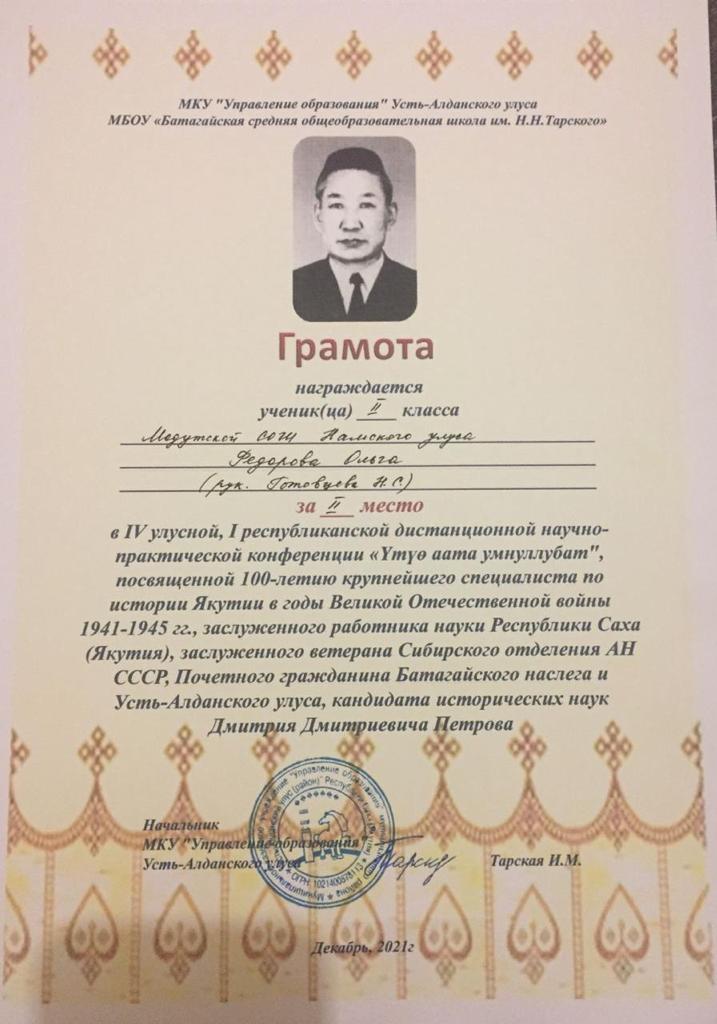 МКУ "Управление образования" Усть-Алданского улуса
МБОУ «Батагайская средняя общеобразовательная школа им. Н.Н.Тарского»
Грамота
награждается
ученик(ца) II класса
Модутской СОШ Намского улуса
Федорова Ольга
(рук. Готовцева Н.С.)
за II место
в IV улусной, I республиканской дистанционной научно-
практической конференции «Үтүө аата умнуллубат",
посвященной 100-летию крупнейшего специалиста по
истории Якутии в годы Великой Отечественной войны
1941-1945 гг., заслуженного работника науки Республики Саха
(Якутия), заслуженного ветерана Сибирского отделения АН
СССР, Почетного гражданина Батагайского наслега и
Усть-Алданского улуса, кандидата исторических наук
Дмитрия Дмитриевича Петрова
Начальник
МКУ "Управление образования"
Усть-Алданского улуса Тарская И.М.
ОГРН 1021400878113
Декабрь, 2021г